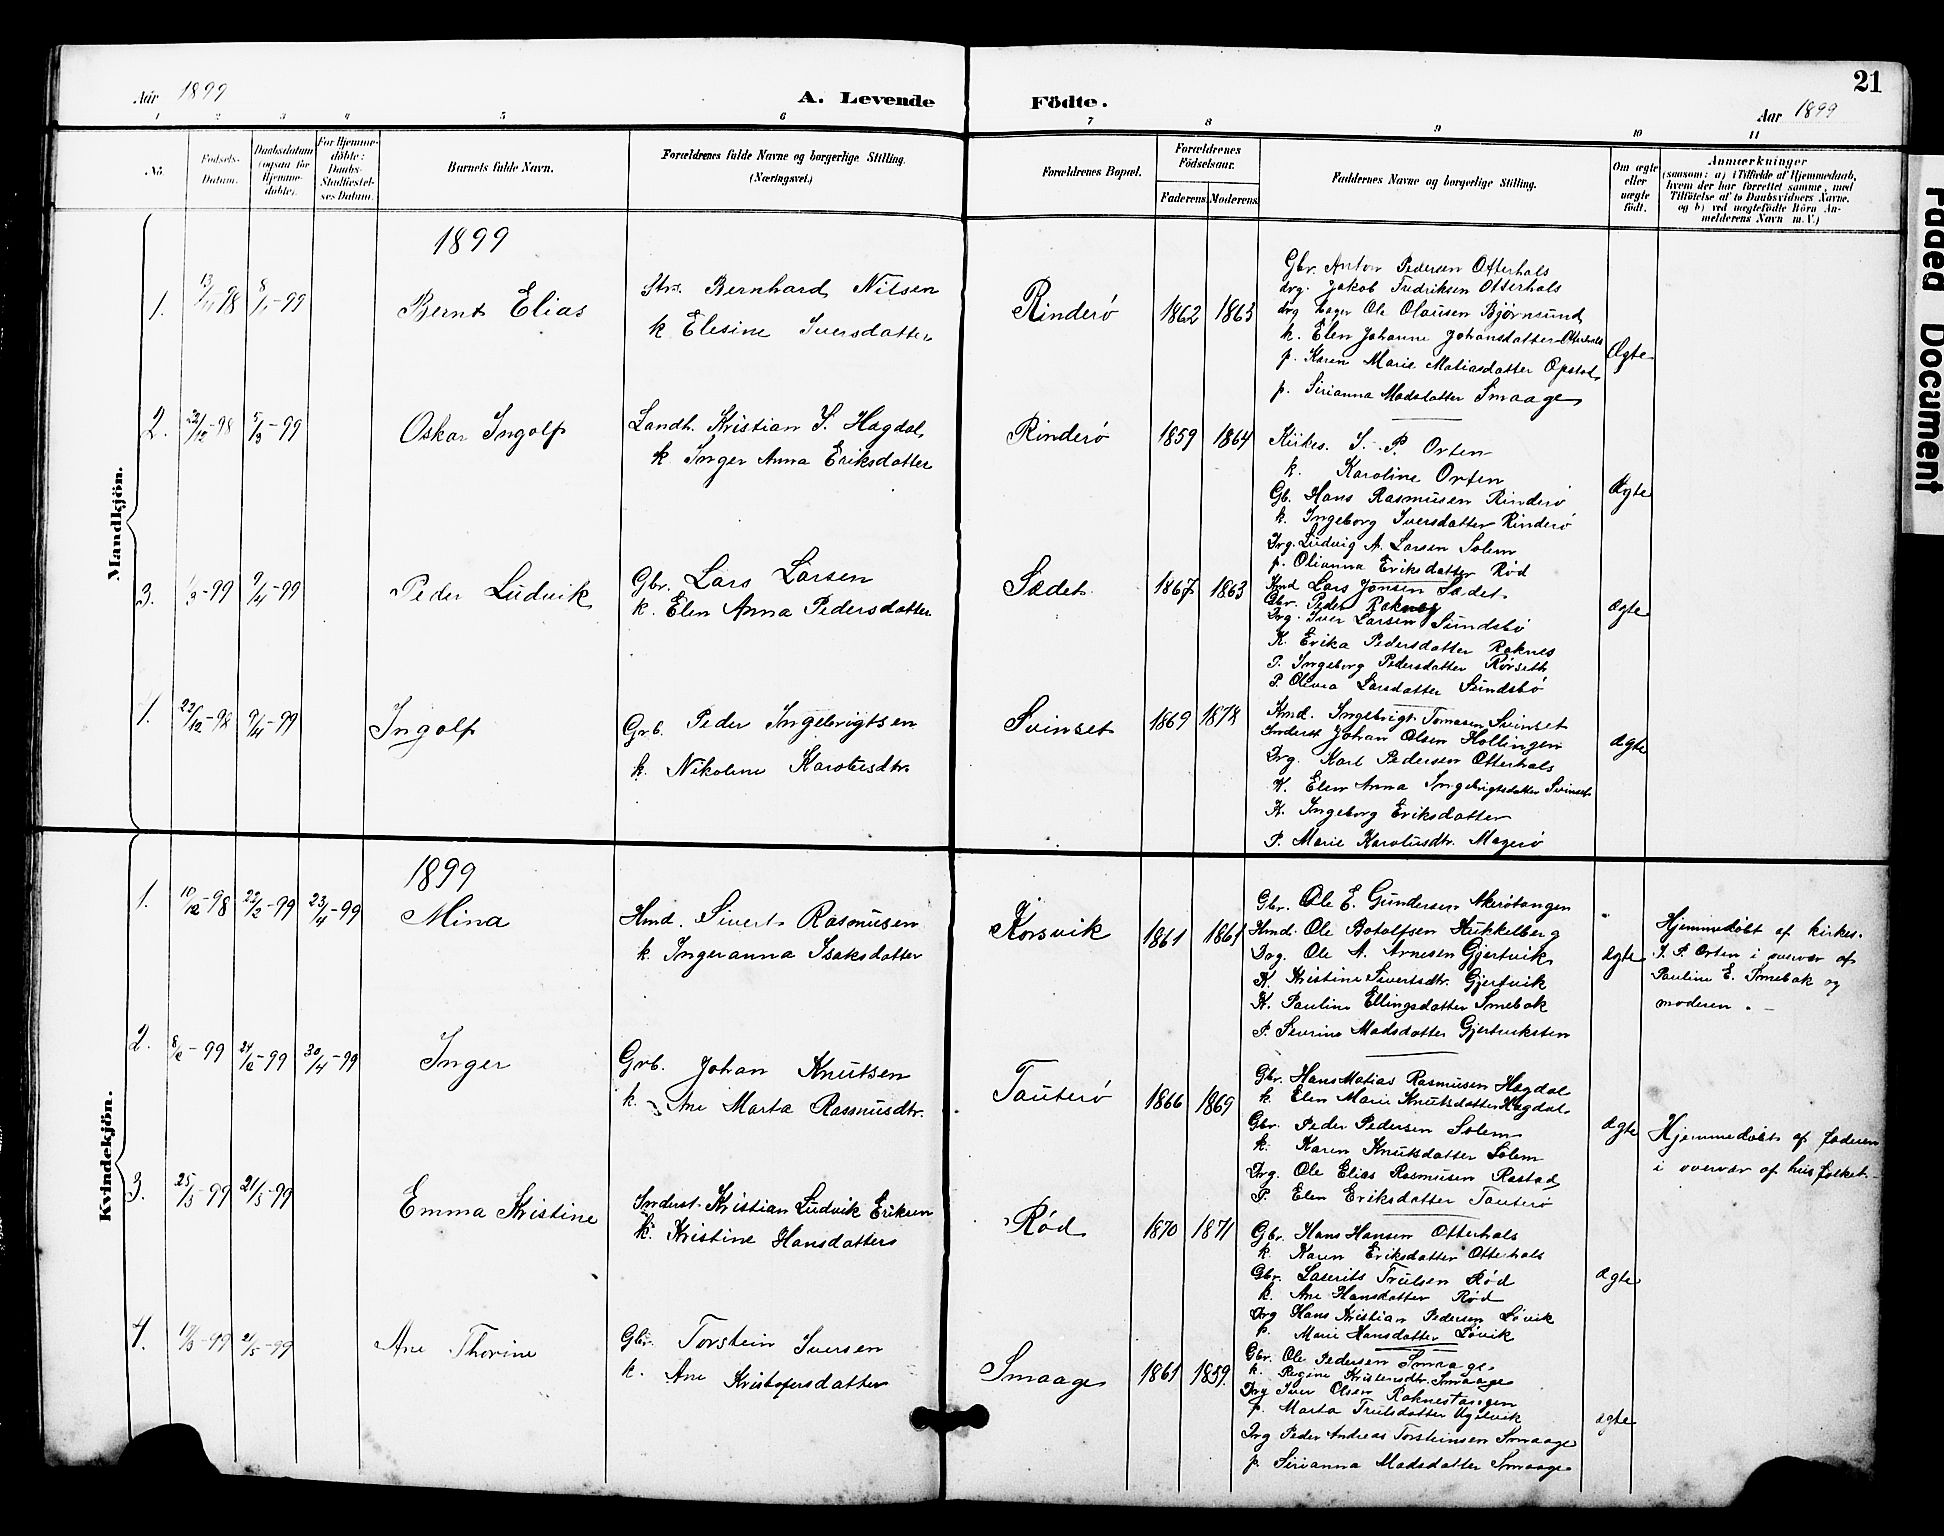 21
Aar 1899
A. Levende Födte.
Aar 1899
1 2 3 4 5 6 7 8 9 10 11
No.
Fødsels-Datum.
Daabsdatum (ogsaa for Hjemme-döbte).
For Hjemme-döbte: Daabs-Stadfæstel-ses Datum.
Barnets fulde Navn.
Forældrenes fulde Navne og borgerlige Stilling. (Næringsvei.)
Forældrenes Bopæl.
Forældrenes Födselsaar.
Faderens. Moderens.
Faddernes Navne og borgerlige Stilling.
Om ægte eller uægte födt.
Anmærkninger
(saasom: a) i Tilfælde af Hjemmedaab,
hvem der har forrettet samme, med
Tilföielse af to Daabsvidners Navne,
og b) ved uægtefödte Börn An-
melderens Navn m. V.)
Faded Document
Mandkjön.
1899
1. 13/11-98 8/1-99 Bernt Elias
Str. Bernhard Nilsen
k Elesine Iversdatter
Rinderö 1862 1863
Gbr. Anton Pedersen Otterhals
drg. Jakob Fredriksen Otterhals
drg Hager Ole Olausen Bjørnsund
k. Elen Johanne Johansdatter Otterhals
p. Karen Marie Matiasdatter Opstad
p. Sirianna Madsdatter Smaage
Ægte
2. 22/12-98 5/3-99 Oskar Ingolf
Landh. Kristian S. Hagdal
k Inger Anna Eriksdatter
Rinderö 1859 1864
Kirkes. I. P. Orten
k. Karoline Orten
Gb. Hans Rasmusen Rinderö
k. Ingeborg Iversdatter Rinderö
Drg. Ludvig A. Larsen Solem
p. Olianna Eriksdatter Rød
Ægte
3. 1/3-99 9/4-99 Peder Ludvik
Gbr. Lars Larsen
k. Elen Anna Pedersdatter
Sædet 1867 1863
Kmd Lars Jonsen Sædet
Gbr. Peder Raknes
Drg. Iver Larsen Sundsbö
K. Erika Pedersdatter Raknes
P. Ingeborg Pedersdatter Rörseth
P. Olivia Larsdatter Sundsbö
ægte
4. 22/12-98 9/4-99 Ingolf
Grb. Peder Ingebrigtsen
k. Nikoline Karolusdtr.
Svinset 1869 1878
Kmd. Ingebrigt Tomasen Svinset
Inderst Johan Olsen Hollingen
Drg. Karl Pedersen Otterhals
K. Elen Anna Ingebrigtsdatter Svinset
K. Ingeborg Eriksdatter
P. Marie Karolusdtr. Magerö
ægte
Kvindekjön.
1899
1. 10/12-98 22/2-99 23/4-99 Mina
Hmd. Sivert Rasmusen
k. Ingeranna Isaksdatter
Korsvik 1861 1861
Gbr. Ole E. Gundersen Akerötangen
Hmd. Ole Botolfsen Hukkelberg
Drg. Ole A. Arnesen Gjertvik
K. Kristine Sivertsdtr. Gjertvik
K. Pauline Ellingsdatter Smebak
P. Severine Madsdatter Gjertviksten
ægte
Hjemmedøbt af kirkes.
I. P. Orten i overvær af
Pauline E. Smebak og
moderen. -
2. 8/2-99 24/2-99 30/4-99 Inger
Grb. Johan Knutsen
k. Ane Marta Rasmusdtr.
Tauterö 1866 1869
Gbr. Hans Matias Rasmusen Hagdal
k. Elen Marie Knutsdatter Hagdal
Gbr. Peder Pedersen Solem
k. Karen Knutsdatter Solem
Drg. Ole Elias Rasmusen Rastad
P. Elen Eriksdatter Tauterö
ægte
Hjemmedøbt af faderen
i overvær af husfolket.
3. 25/3-99 21/5-99 Emma Kristine
Inderst. Kristian Ludvik Eriksen
k. Kristine Hansdatter
Rød 1870 1871
Gbr. Hans Hansen Otterhals
k. Karen Eriksdatter Otterhals
Gbr. Laserits Trulsen Rød
k. Ane Hansdatter Rød
Drg Hans Kristian Pedersen Løvik
p. Marie Hansdatter Løvik
ægte
4. 17/3-99 21/5-99 Ane Thorine
Gbr. Torstein Iversen
k. Ane Kristofersdatter
Smaage 1861 1859.
Gbr. Ole Pedersen Smaage.
k. Regine Kristensdtr. Smaage
Drg Iver Olsen Raknestangen
p. Marta Trulsdatter Ugelvik
Drg Peder Andreas Torsteinsen Smaage
p. Sirianna Madsdatter Smaage
ægte